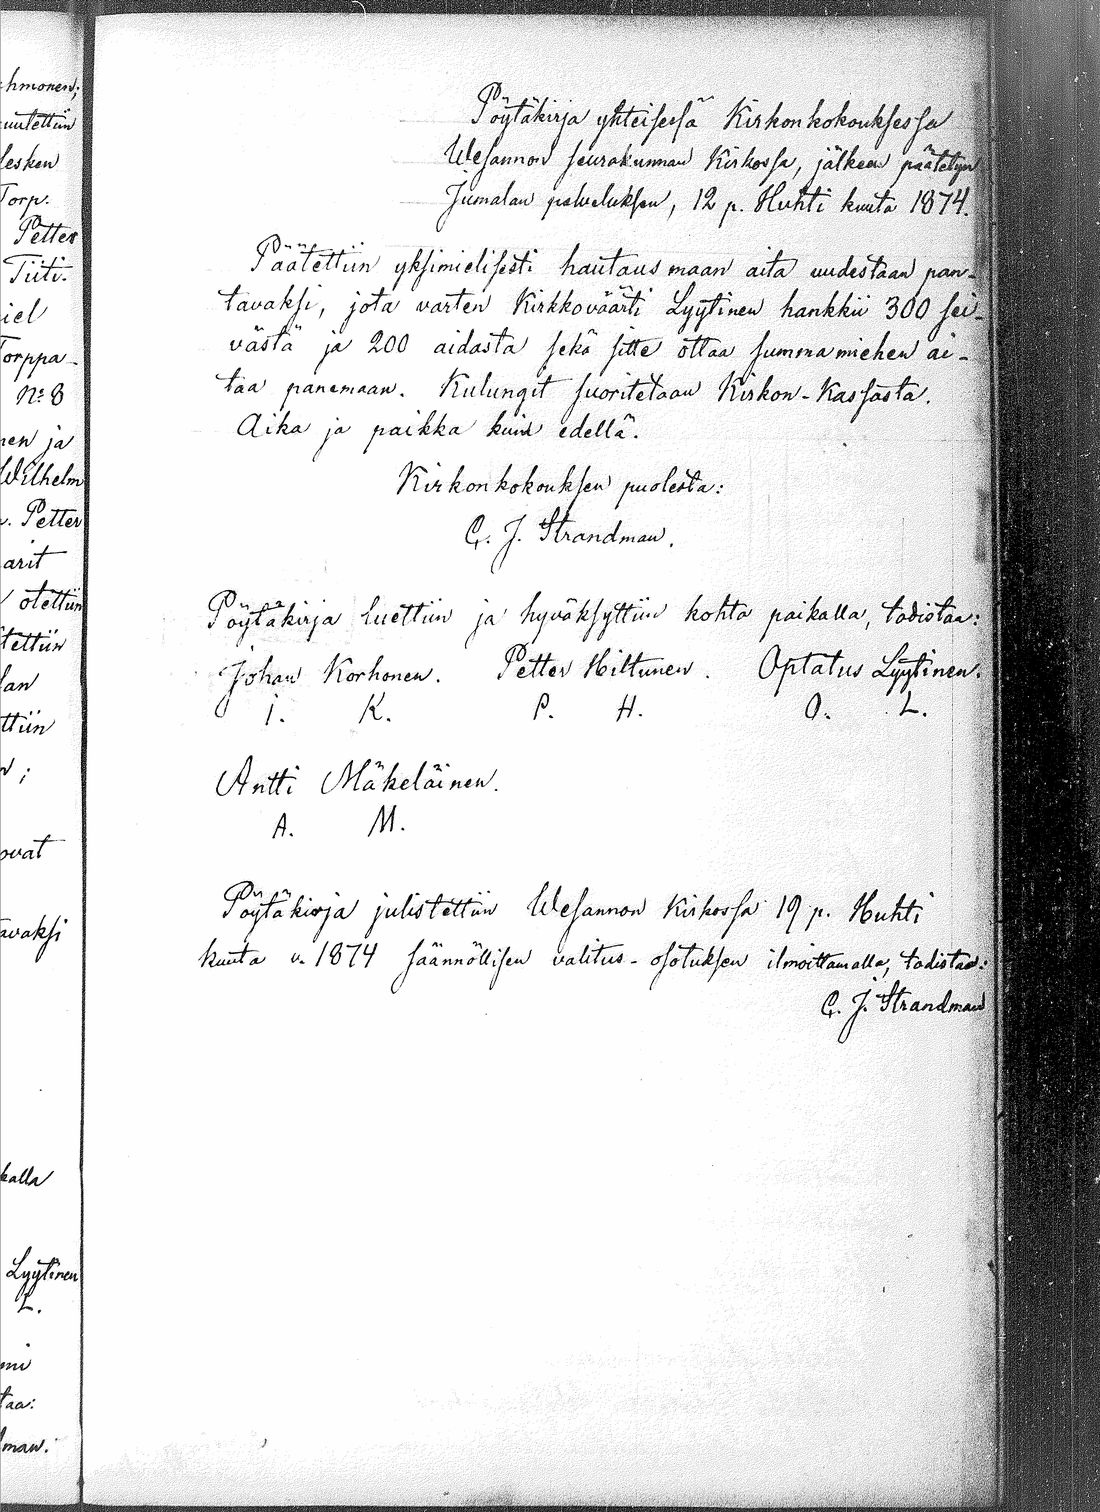 hmonen;
uutettiin
lesken
Torp.
Petter
Tiiti-
iel
Torppa-
No 8
nen ja
Wilhelm
Petter
arit
otettiin
tettiin
lan
ttiin
ovat
avaksi
kalla
Lyytinen
L.
mi
taa:
man.
Pöytäkirja yhteisessä Kirkonkokouksessa
Wesannon seurakunnan Kirkossa, jälkeen päätetyn
Jumalan palveluksen, 12 p. Huhti kuuta 1874.
Päätettiin yksimielisesti hautausmaan aita uudestaan pan-
tavaksi, jota varten Kirkkoväärti Lyytinen hankkii 300 sei-
västä ja 200 aidasta sekä sitte ottaa summamiehen ai-
taa panemaan. Kulungit suoritetaan Kirkon-Kassasta.
Aika ja paikka kuin edellä.
Kirkonkokouksen puolesta:
C. J. Strandman.
Pöytäkirja luettiin ja hyväksyttiin kohta paikalla, todistaa:
Johan Korhonen. Petter Hiltunen. Optatus Lyytinen.
I. K. P. H. O. L.
Antti Mäkeläinen.
A. M.
Pöytäkirja julistettiin Wesannon Kirkossa 19 p. Huhti
kuuta v. 1874 säännöllisen valitus-osotuksen ilmoittamalla, todistaa:
C. J. Strandman